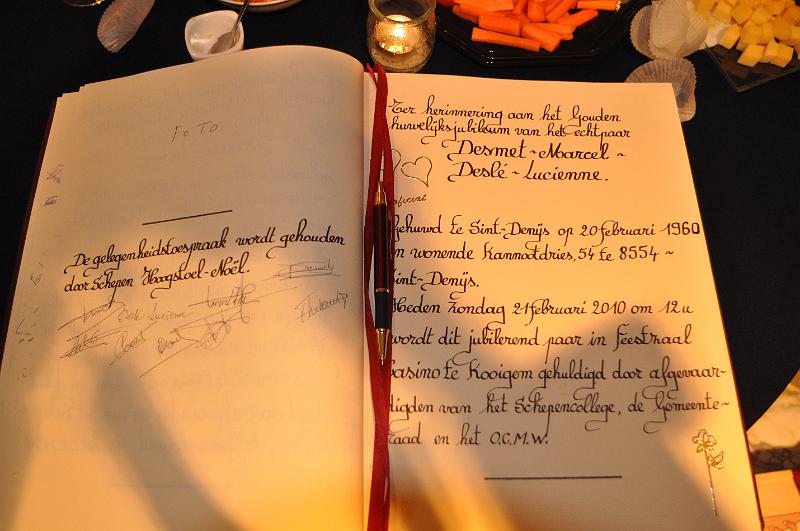 FOTO
De gelegenheidstoespraak wordt gehouden
door Schepen Hoogstoel-Noël.
Ter herinnering aan het Gouden
huwelijksjubileum van het echtpaar
Desmet-Marcel~
Deslé-Lucienne.
Gehuwd te Sint-Denijs op 20 februari 1960
en wonende Kannootdries, 54 te 8554~
Sint-Denijs.
Heden zondag 21 februari 2010 om 12u
wordt dit jubilerend paar in feestzaal
Casino te Kooigem gehuldigd door afgevaar-
digden van het Schepencollege, de Gemeente-
raad en het O.C.M.W.